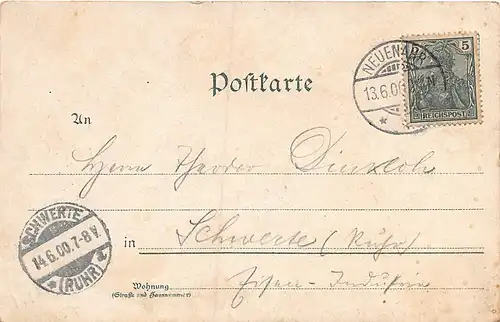 Postkarte
NEUENAHR
13.6.00
5
REICHSPOST
An
Herrn Theodor
SCHWERTE
14.6.00.7-8V.
(RUHR)
in Schwerte (Ruhr)
Eisen-Industrie
Wohnung
(Straße und Hausnummer)